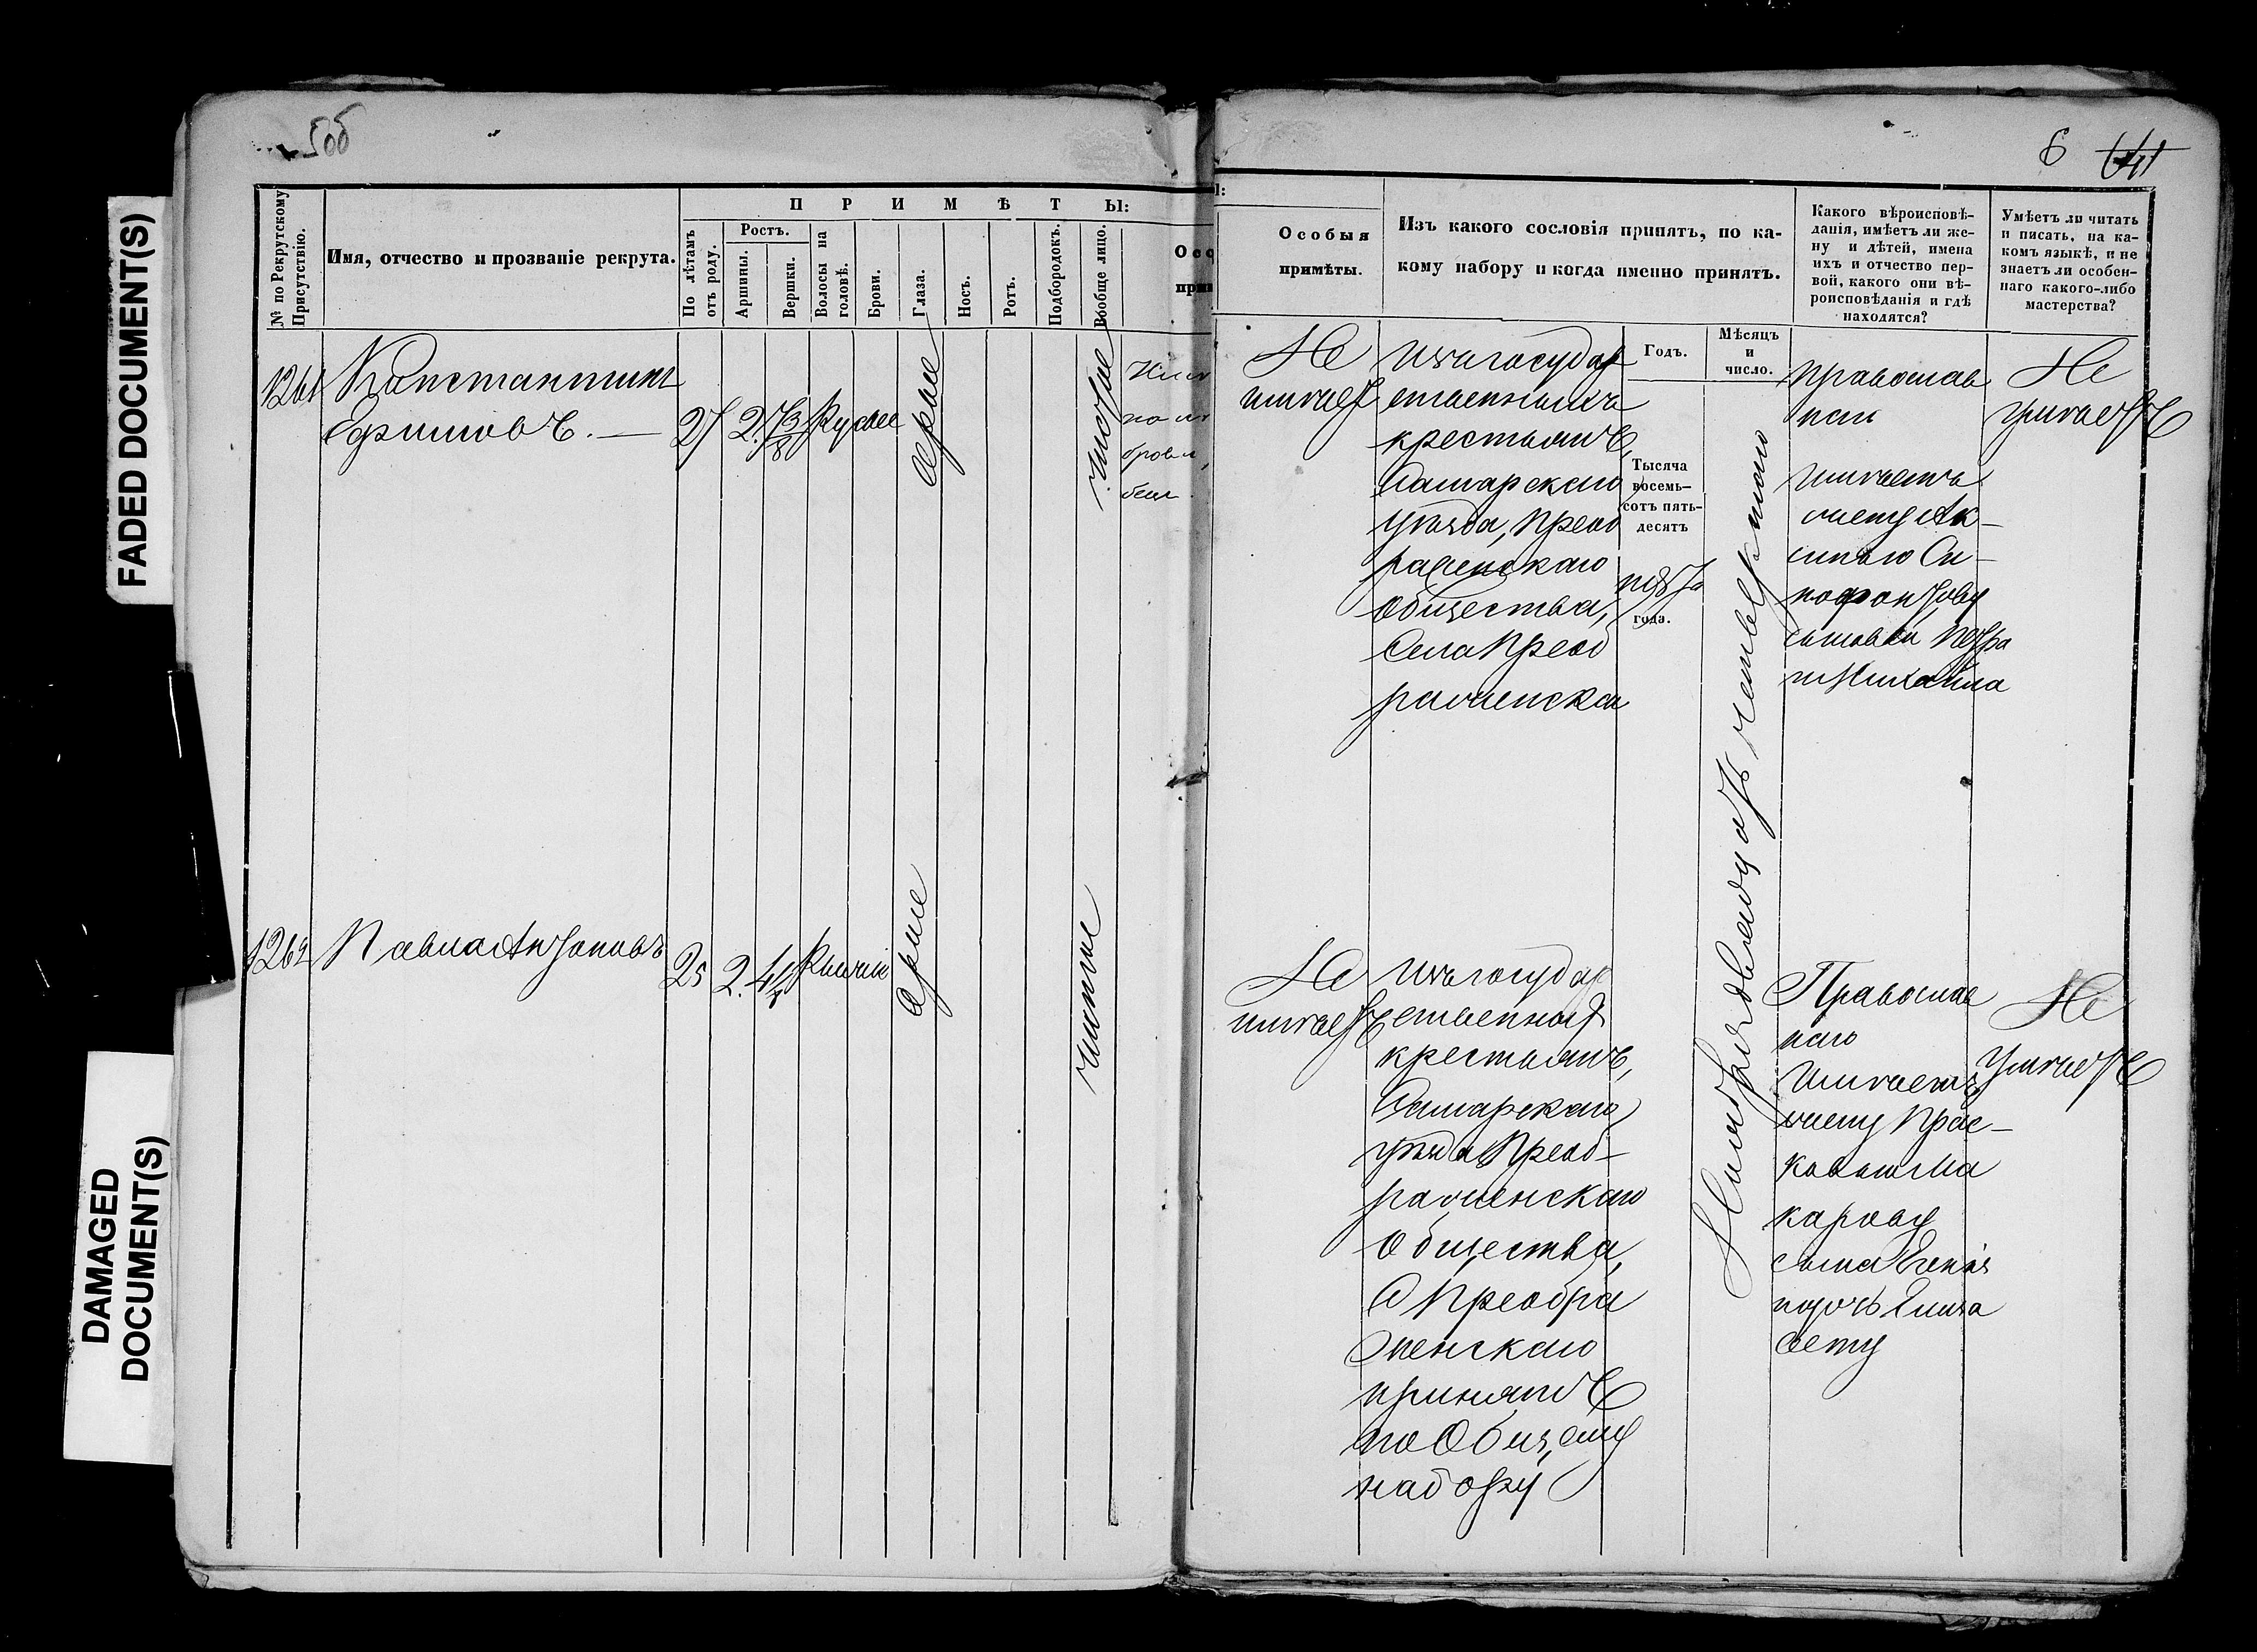 FADED DOCUMENT(S)
DAMAGED
DOCUMENT(S)
5об
№ по Рекрутскому
Присутствію.
Имя, отчество и прозваніе рекрута.
П Р И М Ѣ Т Ы:
По лѣтамъ
отъ роду.
Ростъ.
Аршины.
Вершки.
Волосы на
головѣ.
Брови.
Глаза.
Носъ.
Ротъ.
Подбородокъ.
Вообще лицо.
1261
Константинъ
Ефимовъ. —
2
Русые
Сѣрые
Чистое
1262
Павла Антоновъ
25
2. 4
Сѣрые
чистое
6
Особыя
примѣты.
Изъ какого сословія принятъ, по ка-
кому набору и когда именно принятъ.
Какого вѣроисповѣ-
данія, имѣетъ ли же-
ну и дѣтей, имена
ихъ и отчество пер-
вой, какого они вѣ-
роисповѣданія и гдѣ
находятся?
Умѣетъ ли читать
и писать, на ка-
комъ языкѣ, и не
знаетъ ли особен-
наго какого-либо
мастерства?
Годъ.
Мѣсяцъ
и
число.
Не
имѣетъ
Изъ государ
ственныхъ
крестьянъ,
Самарскаго
уѣзда, Преоб
раженскаго
Общества,
Села Преоб
раженска
Тысяча
восемь-
сотъ пять-
десятъ
года.
Ноября двадцать четвертаго
Православ
наго
Имѣетъ
жену Ак-
синью
сыновей Петра
и Михайла
Не
умѣетъ
Не
имѣетъ
Изъ государ
ственныхъ
крестьянъ,
Самарскаго
уѣзда Преоб-
раженскаго
Общества,
С Преобра
женскаго
принятъ
по Общему
набору
Православ
наго
Имѣетъ
жену Прас-
ковью Ма
карову
сына
дочь Елиза
вету
Не
умѣетъ